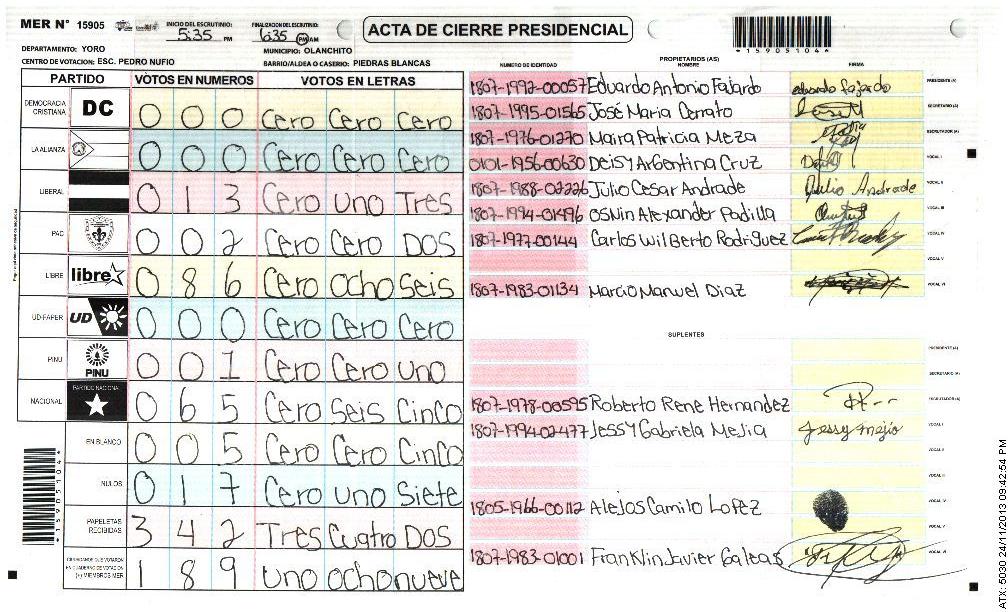 MER N° 15905 INICIO DEL ESCRUTINIO: 5:35 PM FINALIZACION DEL ESCRUTINIO: 6:35 PM AM ACTA DE CIERRE PRESIDENCIAL
DEPARTAMENTO: YORO MUNICIPIO: OLANCHITO
CENTRO DE VOTACION: ESC. PEDRO NUFIO BARRIO/ALDEA O CASERIO: PIEDRAS BLANCAS
PARTIDO VOTOS EN NUMEROS VOTOS EN LETRAS
DEMOCRACIA CRISTIANA DC 0 0 0 Cero Cero Cero
LA ALIANZA 0 0 0 Cero Cero Cero
LIBERAL 0 1 3 Cero uno Tres
PAC 0 0 2 Cero Cero DOS
LIBRE libre 0 8 6 Cero ocho Seis
UD-FAPER UD 0 0 0 Cero Cero Cero
PINU PINU 0 0 1 Cero Cero uno
NACIONAL PARTIDO NACIONAL 0 6 5 Cero Seis Cinco
EN BLANCO 0 0 5 Cero Cero Cinco
NULOS 0 1 7 Cero uno Siete
PAPELETAS RECIBIDAS 3 4 2 Tres Cuatro DOS
CIUDADANOS QUE VOTARON EN CUADERNO DE VOTACION (+) MIEMBROS MER 1 8 9 uno ocho nueve
15905104
PROPIETARIOS (AS)
NUMERO DE IDENTIDAD NOMBRE FIRMA
1807-1992-00057 Eduardo Antonio Fajardo eduardo fajardo PRESIDENTE (A)
1807-1995-01565 José Maria Cerrato SECRETARIO (A)
1807-1976-01270 Maira Patricia Meza ESCRUTADOR (A)
0101-1956-00630 Deisy Argentina Cruz VOCAL I
1807-1988-02226 Julio Cesar Andrade Julio Andrade VOCAL II
1807-1994-01496 Osnin Alexander Padilla VOCAL III
1807-1977-00144 Carlos Wilberto Rodriguez VOCAL IV
VOCAL V
1807-1983-01134 Marcio Manuel Diaz VOCAL VI
SUPLENTES
PRESIDENTE (A)
SECRETARIO (A)
1807-1978-00595 Roberto Rene Hernandez ESCRUTADOR (A)
1807-1994-02477 Jessy Gabriela Mejia Jessy mejia VOCAL I
VOCAL II
VOCAL III
1805-1966-00112 Alejos Camilo Lopez VOCAL IV
VOCAL V
1807-1983-01001 Franklin Javier Galeas VOCAL VI
15905104
ATX: 5030 24/11/2013 09:42:54 PM